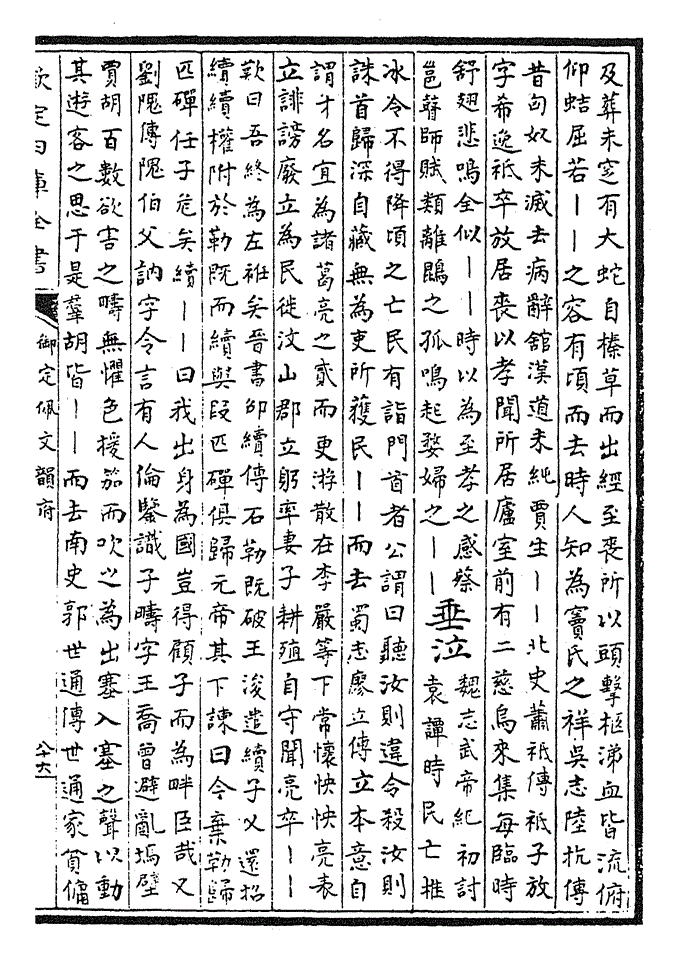 及葬未窆有大蛇自榛草而出經至喪所以頭擊柩涕血皆流俯
仰蛣屈若丨丨之容有頃而去時人知為竇氏之祥吳志陸抗傳
昔匈奴未滅去病辭舘漢道未純賈生丨丨北史蕭祗傳祗子放
字希逸祗卒放居喪以孝聞所居廬室前有二慈烏來集每臨時
舒翅悲鳴全似丨丨時以為至孝之感蔡
邕瞽師賦類離鵾之孤鳴起婺婦之丨丨
垂泣
魏志武帝紀初討
袁譚時民亡椎
冰令不得降頃之亡民有詣門首者公謂曰聽汝則違令殺汝則
誅首歸深自藏無為吏所獲民丨丨而去蜀志廖立傳立本意自
謂才名宜為諸葛亮之貳而更游散在李嚴等下常懷怏怏亮表
立誹謗廢立為民徙汶山郡立躬率妻子耕殖自守聞亮卒丨丨
歎曰吾終為左袵矣晉書邵續傳石勒既破王浚遣續子乂還招
續續權附於勒既而續與段匹磾俱歸元帝其下諫曰今棄勒歸
匹磾任子危矣續丨丨曰我出身為國豈得顧子而為畔臣哉又
劉隗傳隗伯父訥字令言有人倫鑒識子疇字王喬曾避亂塢壁
賈胡百數欲害之疇無懼色援笳而吹之為出塞入塞之聲以動
其遊客之思于是羣胡皆丨丨而去南史郭世通傳世通家貧傭
欽定四庫全書
御定佩文韻府
八十六